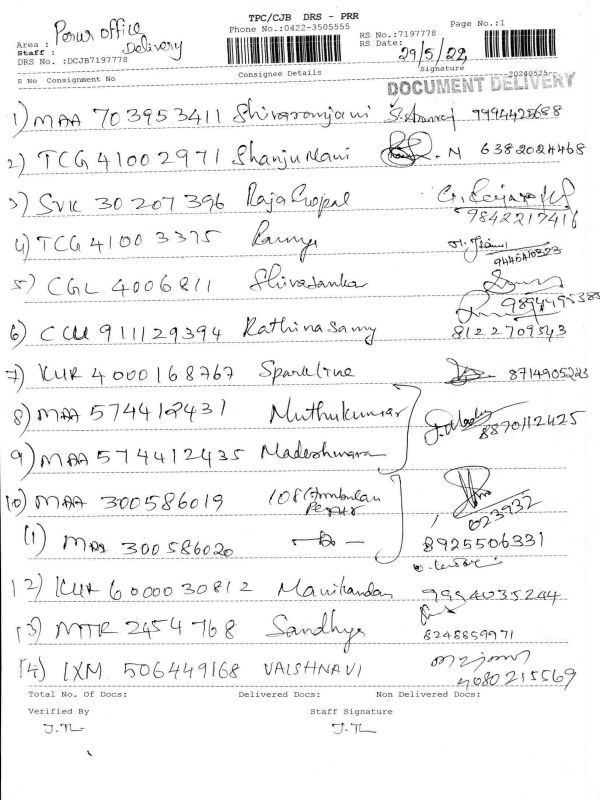 TPC/CJB DRS - PRR
Phone No.:0422-3505555
Page No.:1
RS No.:7197778
RS Date: 29/5/22
Area : Perur office
Staff : Delivery
DRS No. :DCJB7197778
Signature
S No Consignment No Consignee Details 20240525-
DOCUMENT DELIVERY
1) MAA 703953411 Shivaranjani 9994425688
2) TCG 41002971 Shanju Mani . N 6382024468
3) SVK 30207396 RajaGopal
9842217416
4) TCG 41003375 Ramya
9445410323
5) CGL 4006811 Shivasankar
9894495385
6) CCU 911129394 Rathinasamy 8122709543
7) KUR 4000168767 Sparkline 8714905223
8) MAA 574412431 Muthukumar
8870112425
9) MAA 574412435 Madeshwara
10) MAA 300586019 108 Ambulan
Perur
023932
11) MAA 300586020 8925506331
12) KUR 6000030812 Manikandan 9994035244
13) MTR 2454768 Sandhya
8248859971
14) IXM 506449168 VAISHNAVI
9080215569
Total No. Of Docs: Delivered Docs: Non Delivered Docs:
Verified By Staff Signature